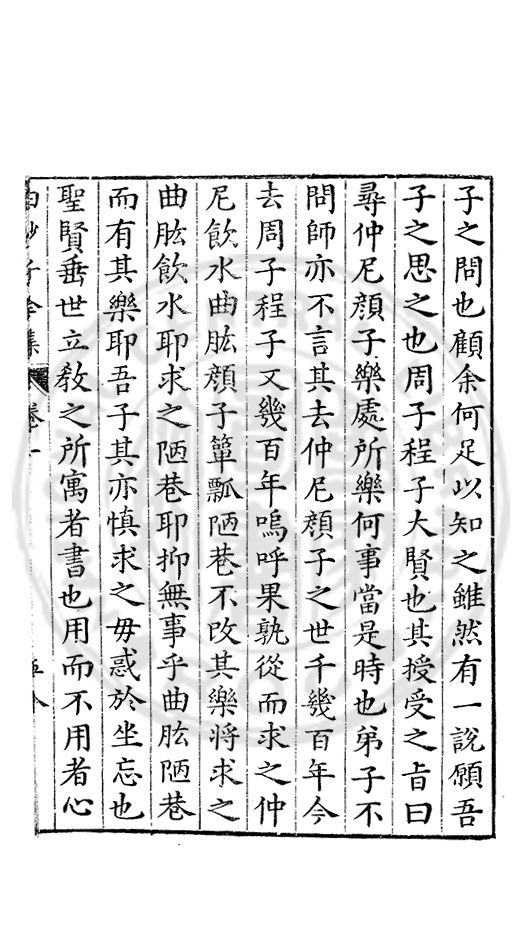 子之問也顧余何足以知之雖然有一說願吾
子之思之也周子程子大賢也其授受之旨曰
尋仲尼顔子樂處所樂何事當是時也弟子不
問師亦不言其去仲尼顔子之世千幾百年今
去周子程子又幾百年嗚呼果孰從而求之仲
尼飲水曲肱顔子簞瓢陋巷不攺其樂將求之
曲肱飲水耶求之陋巷耶抑無事乎曲肱陋巷
而有其樂耶吾子其亦慎求之毋惑於坐忘也
聖賢垂世立敎之所寓者書也用而不用者心
白沙子全集 卷一